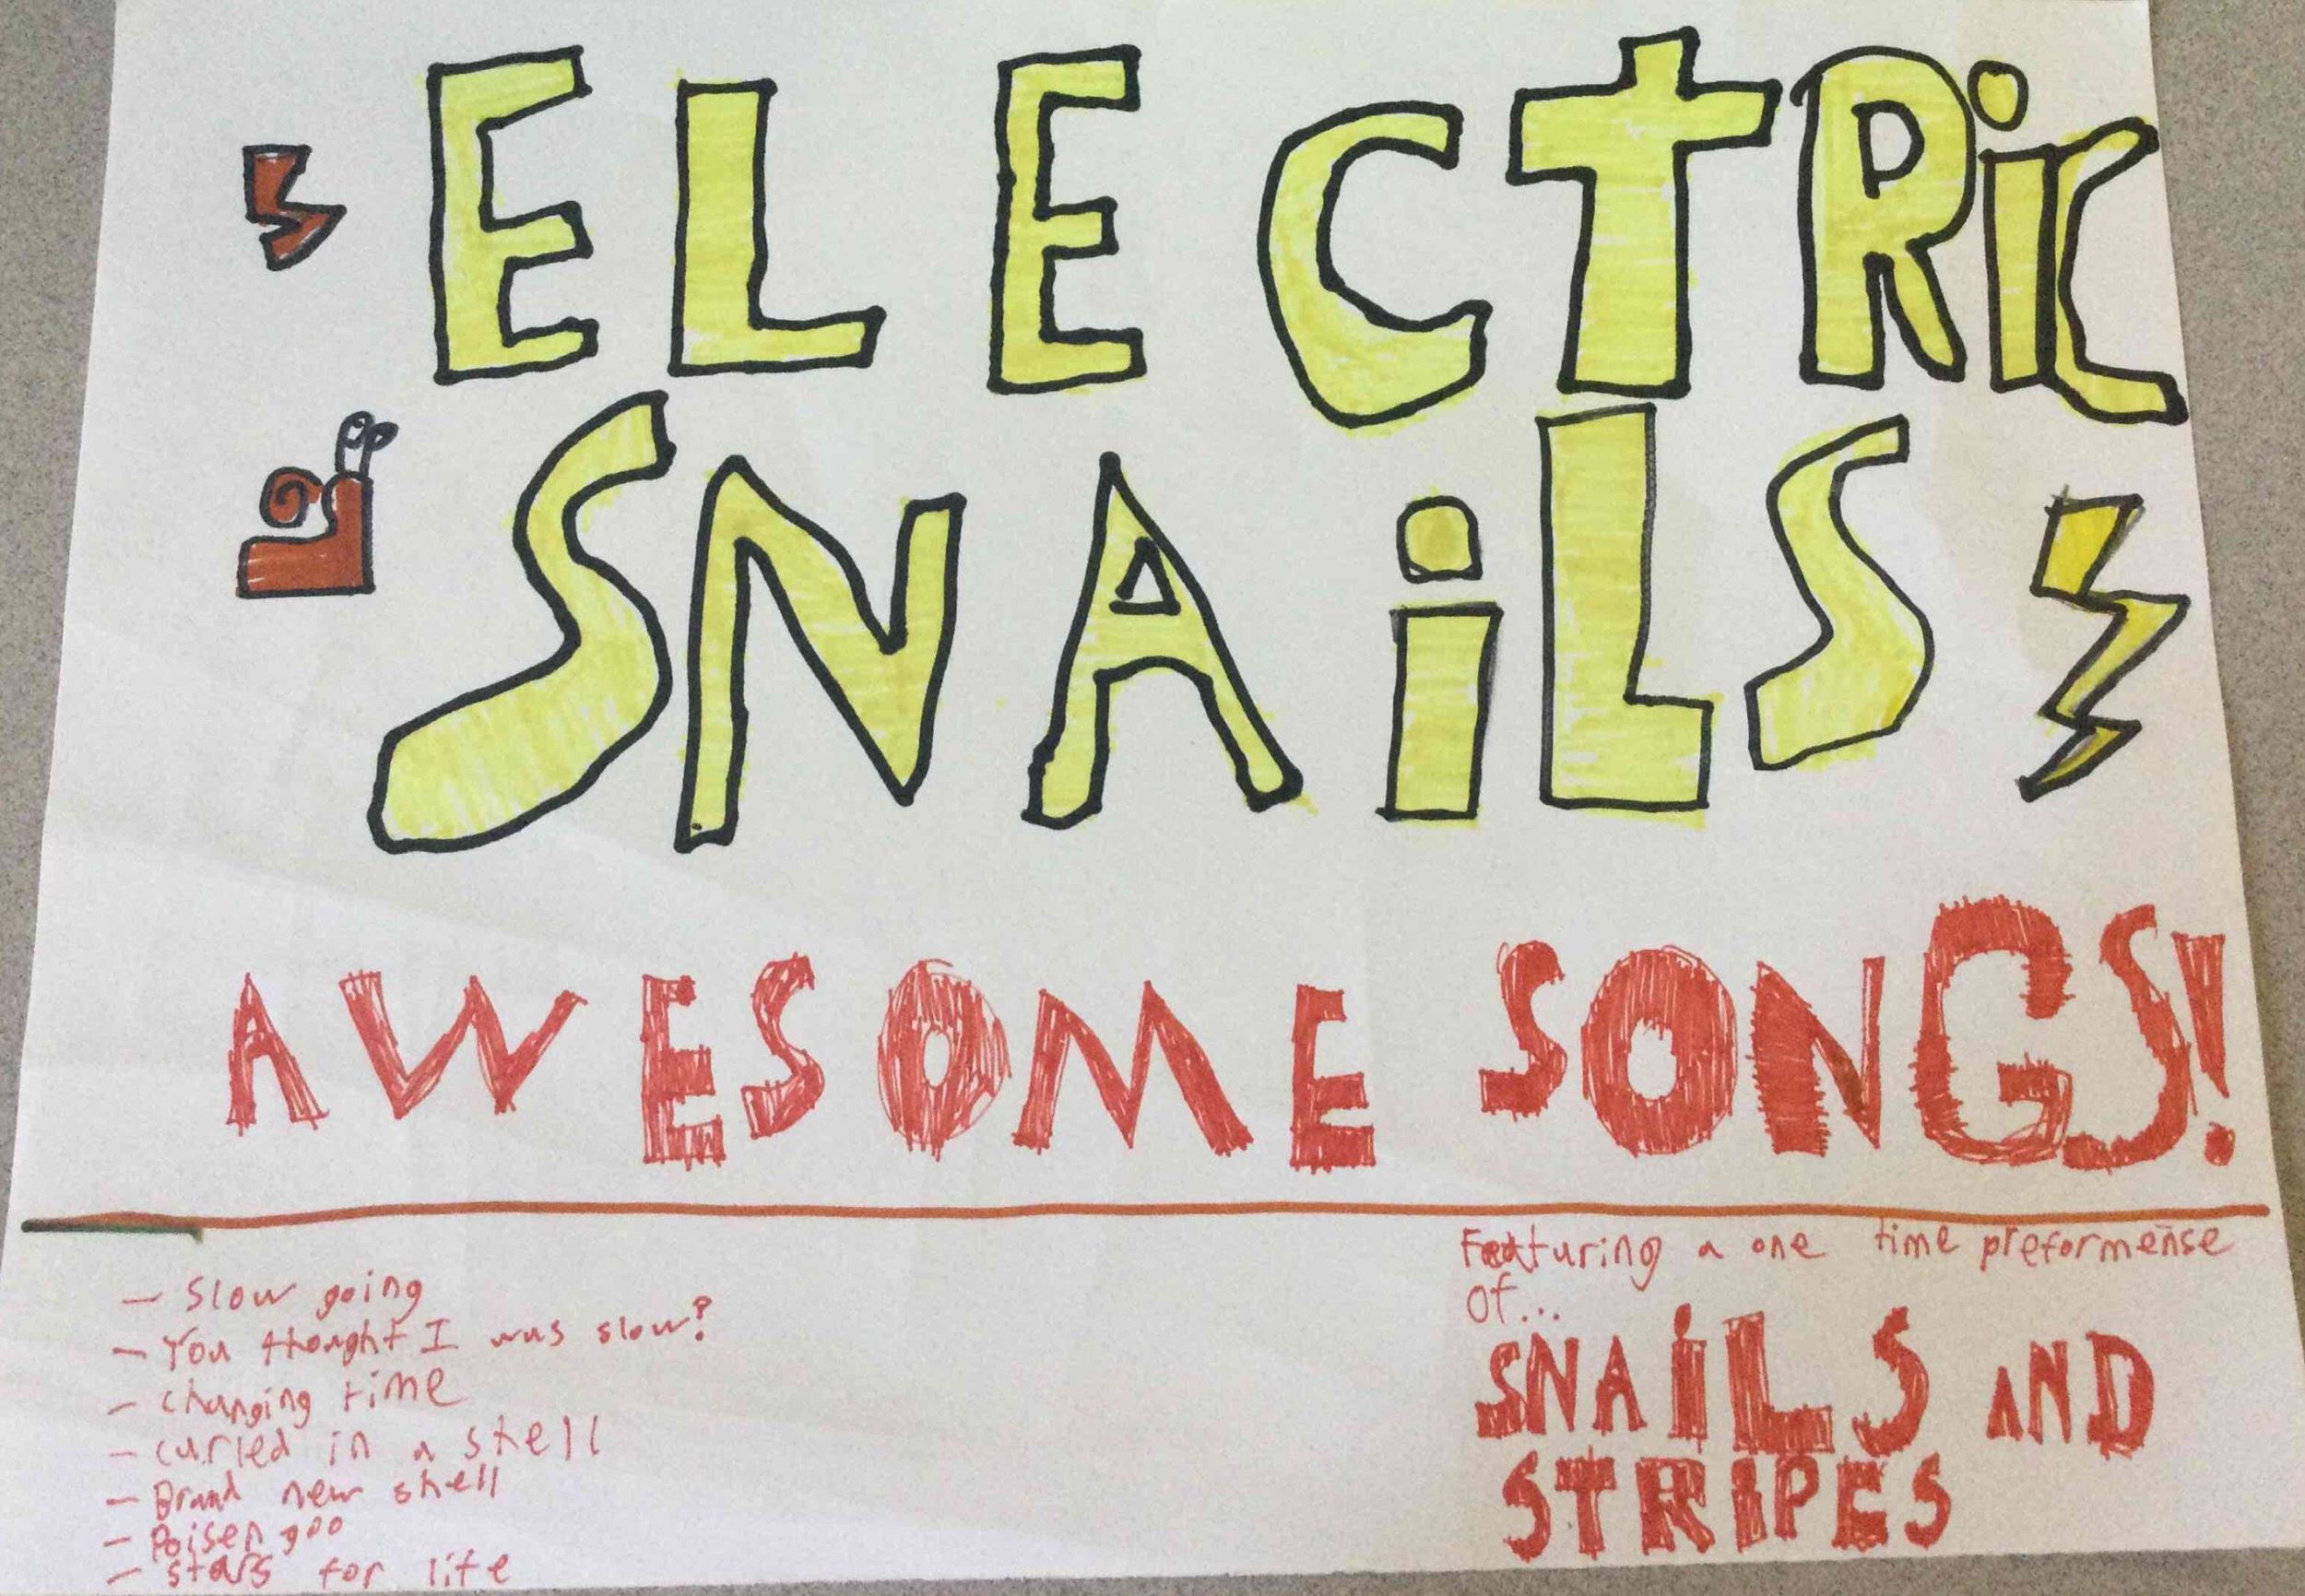 ELECTRiC
SNAiLS
AWESOME SONGS!
Featuring a one time preformense
of...
SNAiLS AND
STRIPES
- Slow going
- You thought I was slow?
- Changing time
- curled in a shell
- Brand new shell
- Poisen goo
- stars for life